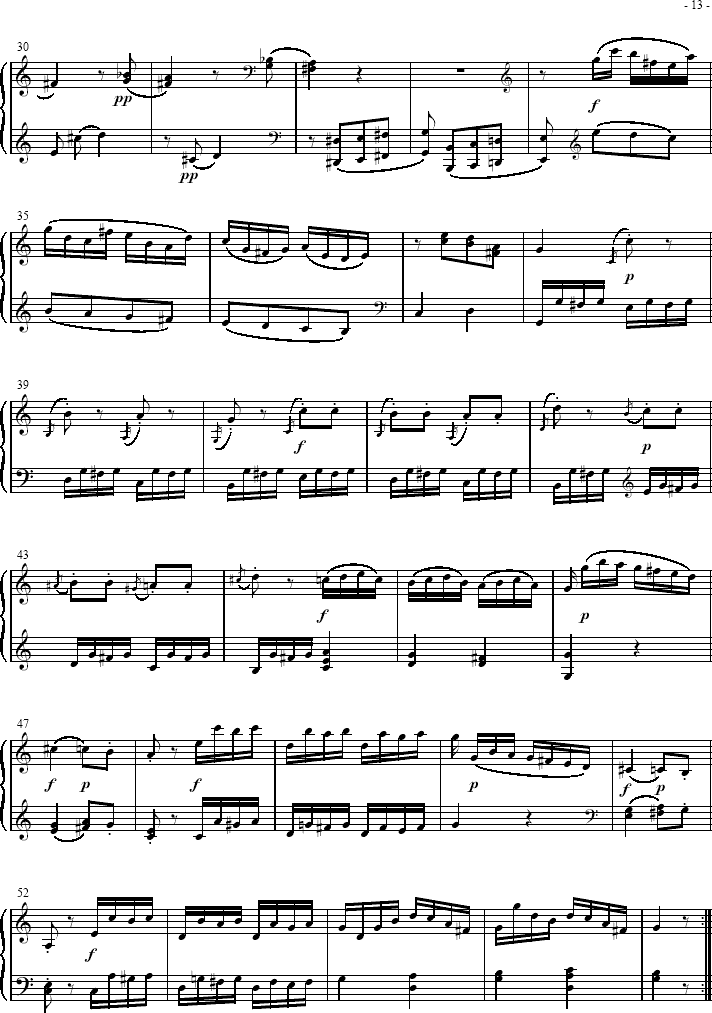 - 13 -
30
pp
pp
f
35
p
39
f
p
43
f
p
47
f p f
p
f p
52
f